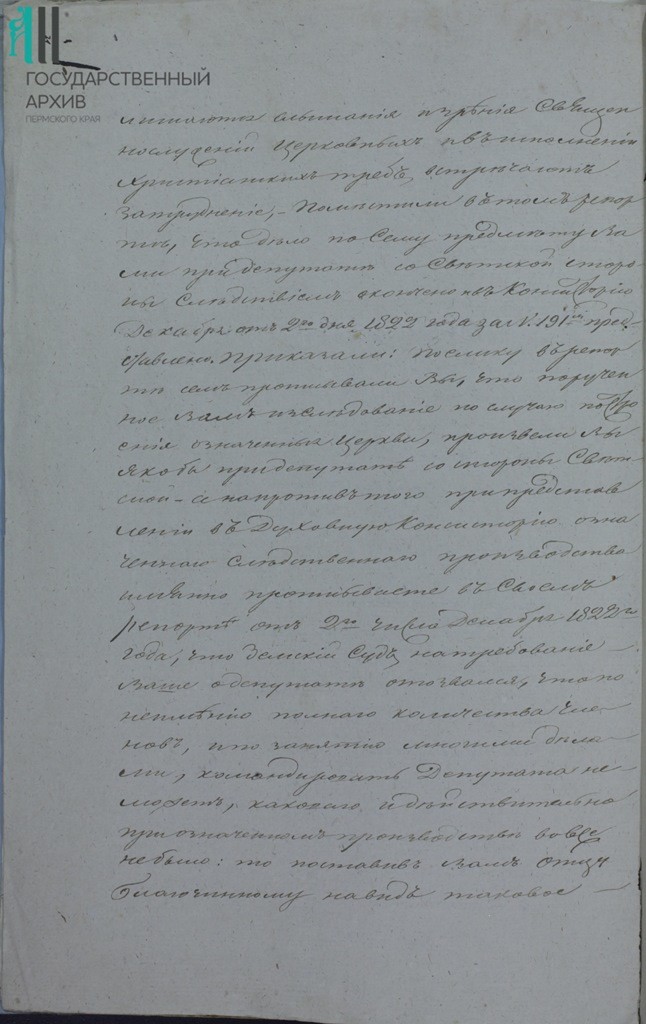 ГОСУДАРСТВЕННЫЙ
АРХИВ
ПЕРМСКОГО КРАЯ
лишаются слышания и зрѣнія Священ
нослуженій Церковныхъ и въ исполненіи
Христіанскихъ требъ встрѣчаютъ
затрудненіе, – Помѣстили въ томъ репор
тѣ, что дѣло по Сему предмѣту Ва
ми при депутатѣ со Свѣтской сторо
ны Слѣдствіемъ окончено и въ Консисторію
Декабря отъ 2го дня 1822 года за №. 191мъ пред
ставлено. Приказали: поелику въ репор
тѣ семъ прописывали Вы, что поручен
ное Вамъ изслѣдованіе по случаю постро
енія означенныя Церкви, произвели Вы
якобы при депутатѣ со стороны Свѣт
ской – а напротивъ того при представ
леніи въ Духовную Консисторію озна
ченнаго Слѣдственнаго производства
имянно прописываете въ Своемъ
репортѣ отъ 2го числа Декабря 1822го
года, что Земскій Судъ на требованіе
Ваше о депутатѣ отозвался, что по
неимѣнію полнаго количества Чле
новъ, и по занятію многими дѣла
ми, командировать Депутата не
можетъ, каковаго и дѣйствительно
при означенномъ производствѣ вовсе
не было: то поставивъ Вамъ Отцу
Благочинному на видъ таковое